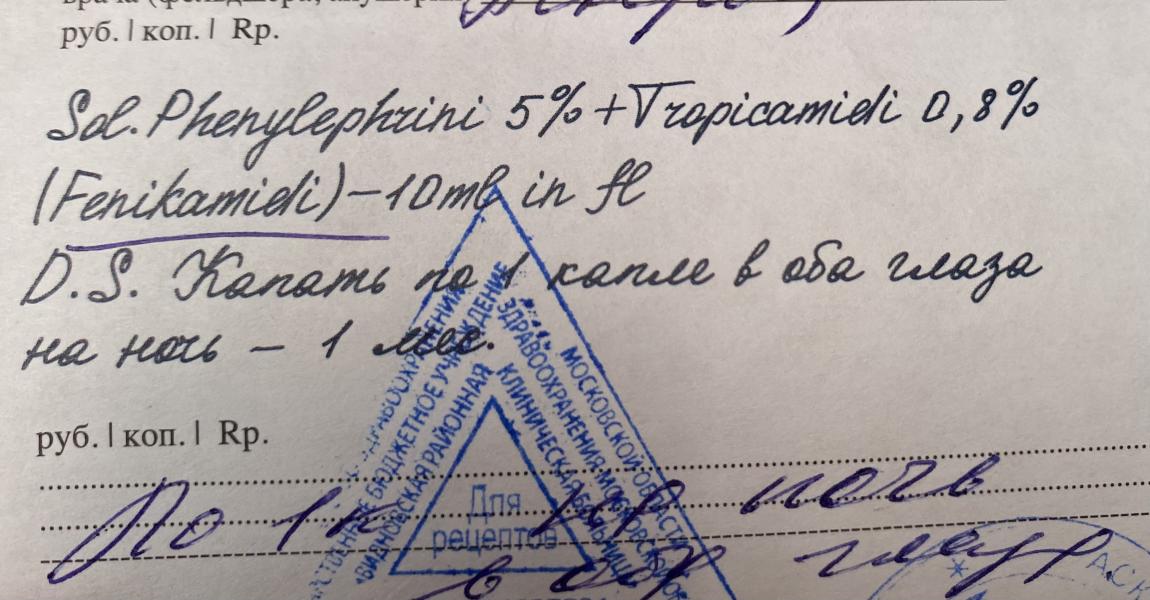 руб. | коп. | Rp.
Sol. Phenylephrini 5% + Tropicamidi 0,8%
(Fenikamidi) – 10ml in fl
D.S. Капать по 1 капле в оба глаза
на ночь – 1 мес.
руб. | коп. | Rp.
По 1 к на ночь
в
БЮДЖЕТНОЕ УЧРЕЖДЕНИЕ
ВИДНОВСКАЯ РАЙОННАЯ
КЛИНИЧЕСКАЯ БОЛЬНИЦА
ЗДРАВООХРАНЕНИЯ МОСКОВСКОЙ
МОСКОВСКОЙ ОБЛАСТИ
Для
рецептов